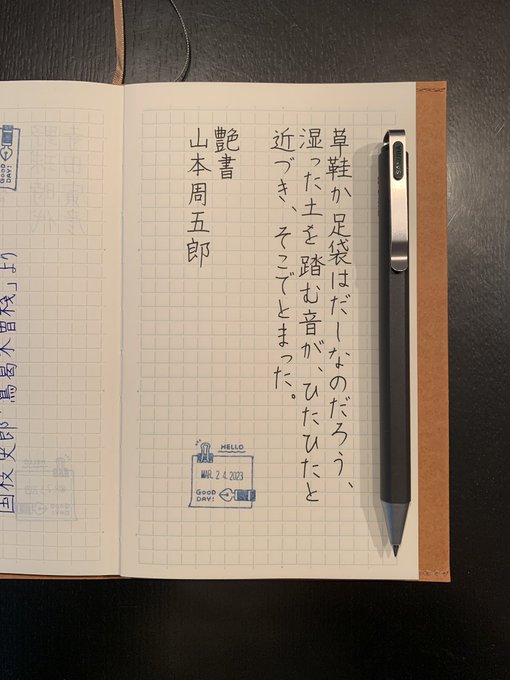 草鞋か足袋はだしなのだろう、
湿った土を踏む音が、ひたひたと
近づき、そこでとまった。
艶書
山本周五郎
HELLO
MAR. 24. 2023
GOOD
DAY!
GOOD
DAY!
国枝史郎「蔦葛木曽棧」より